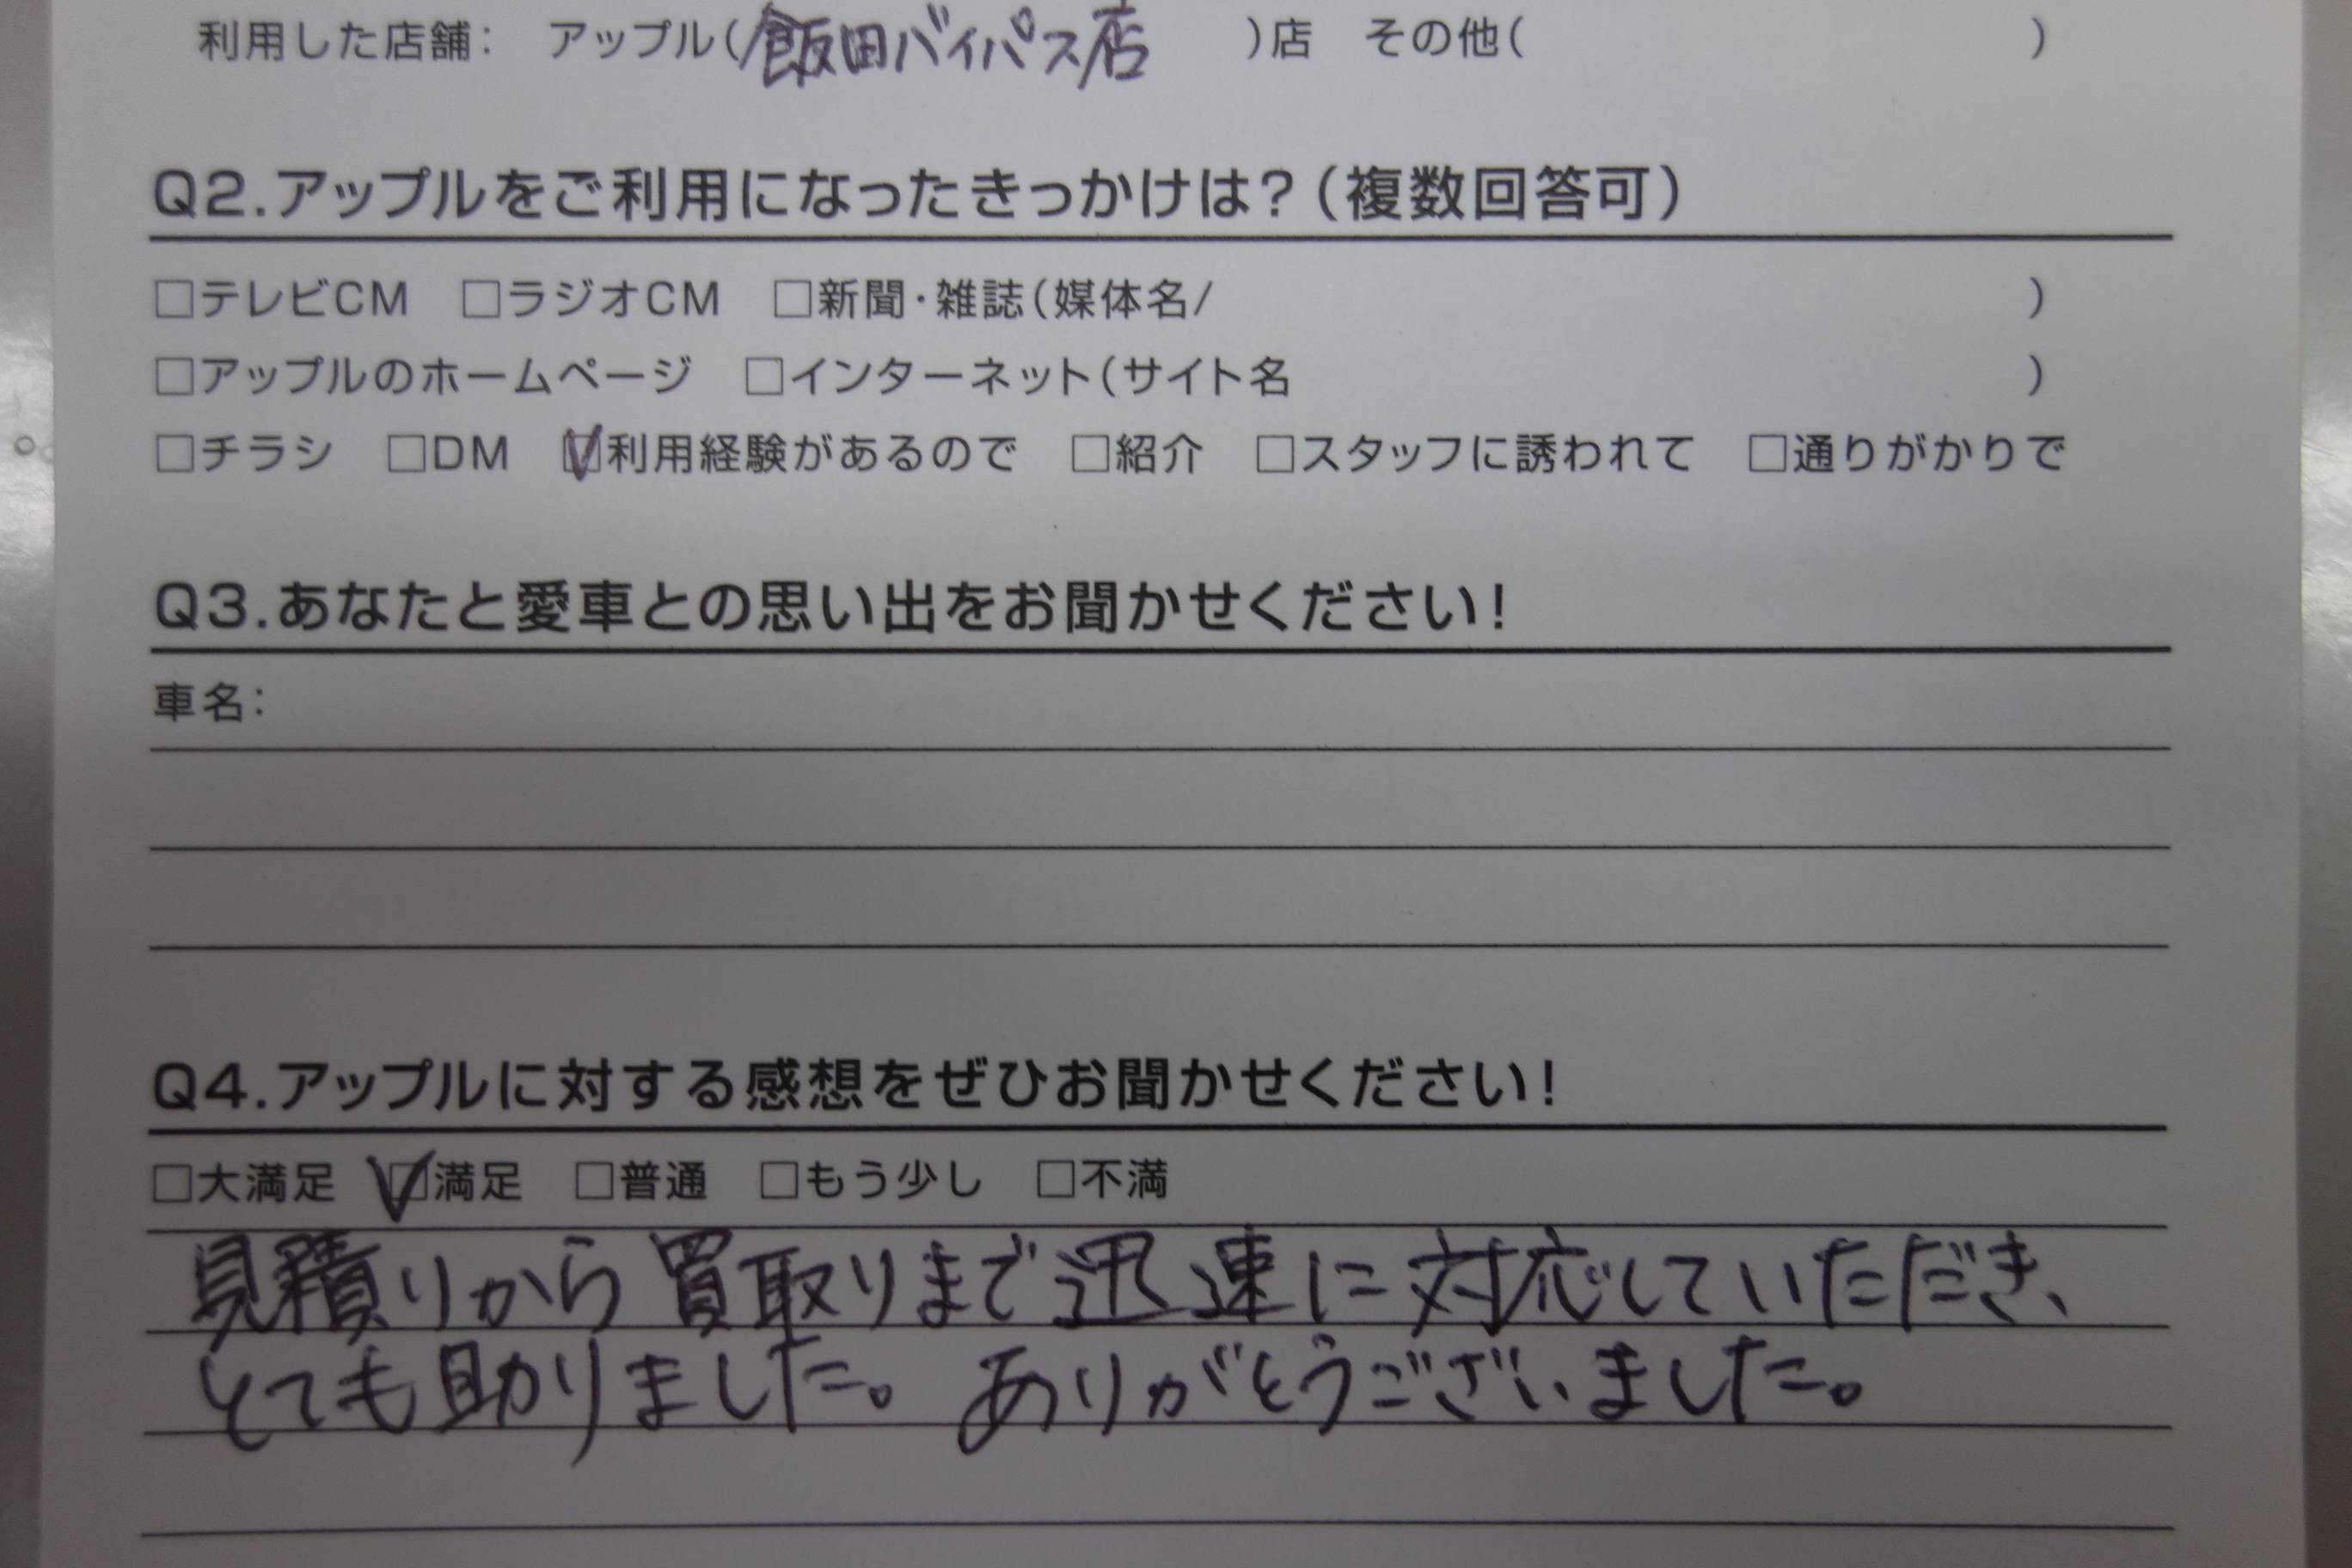 利用した店舗： アップル(飯田バイパス店 )店 その他( )
Q2.アップルをご利用になったきっかけは？（複数回答可）
□テレビCM □ラジオCM □新聞・雑誌(媒体名/ )
□アップルのホームページ □インターネット(サイト名 )
□チラシ □DM ☑利用経験があるので □紹介 □スタッフに誘われて □通りがかりで
Q3.あなたと愛車との思い出をお聞かせください！
車名：
Q4.アップルに対する感想をぜひお聞かせください！
□大満足 ☑満足 □普通 □もう少し □不満
見積りから買取りまで迅速に対応していただき、
とても助かりました。ありがとうございました。